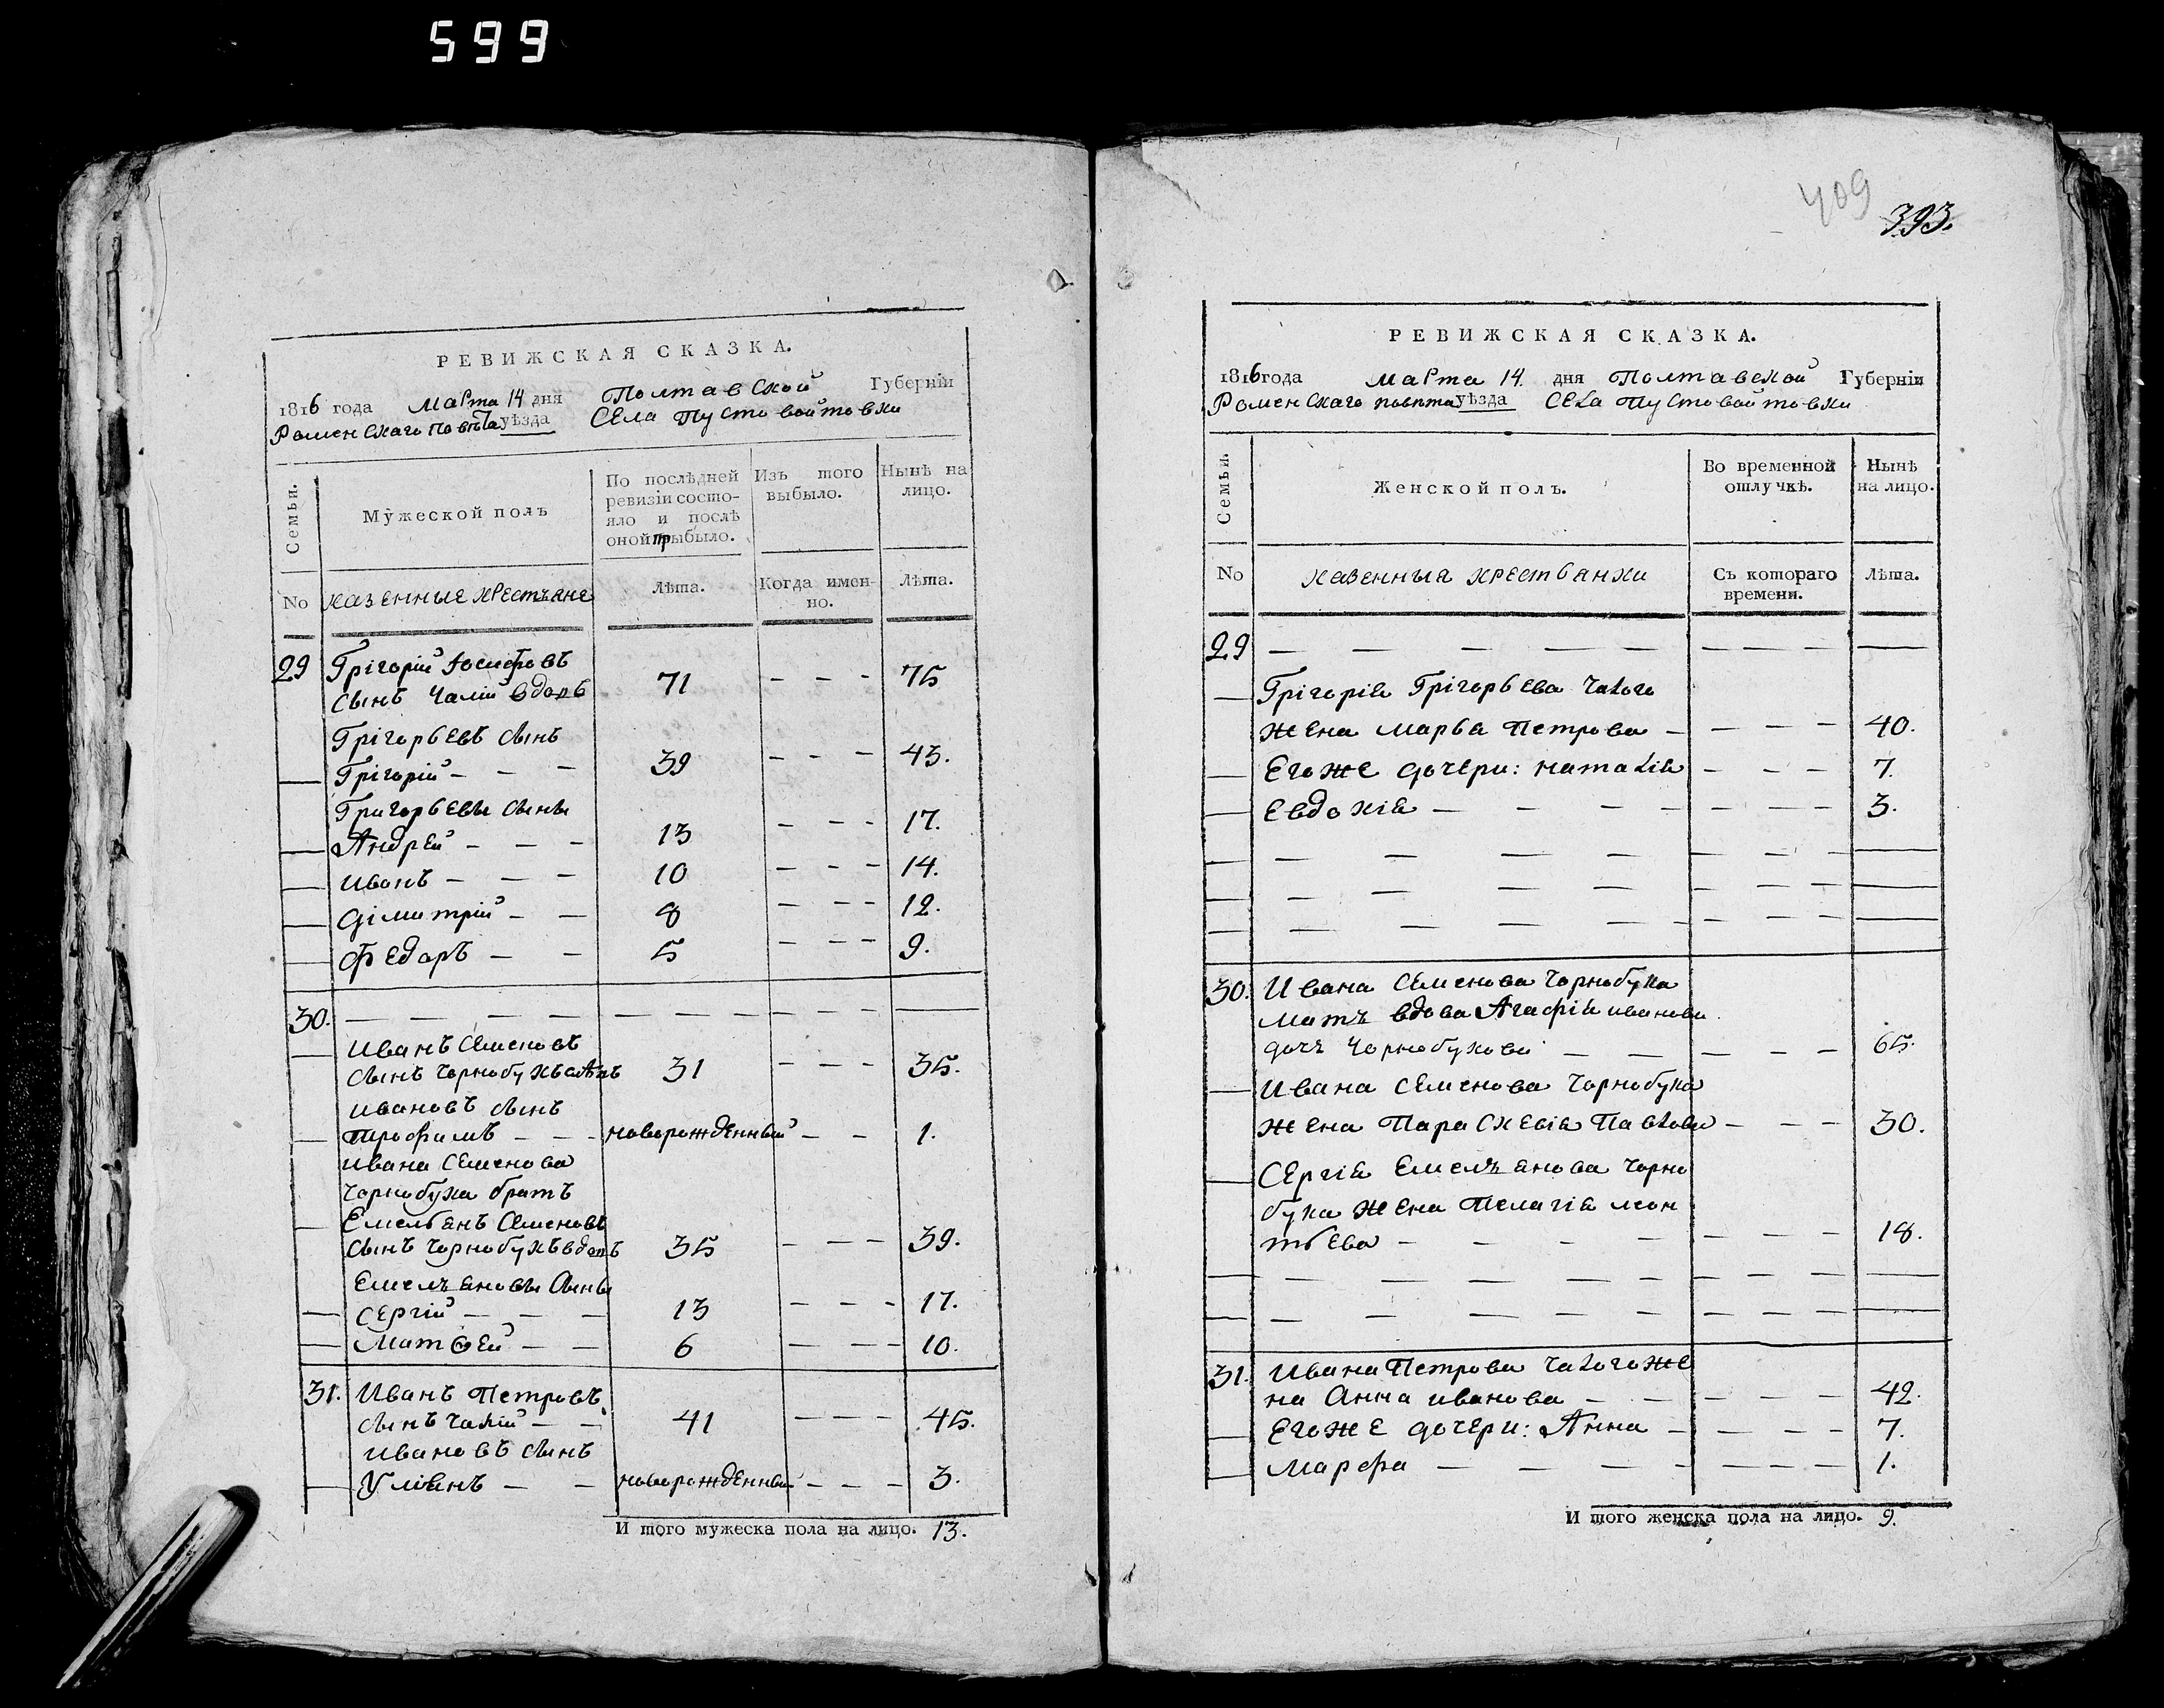 599
РЕВИЖСКАЯ СКАЗКА.
1816 года Марта 14 дня Полтавской Губерніи
Роменскаго повѣта уѣзда Села Пустовойтовки
Семьи.
Мужеской полъ
По послѣдней
ревизіи состо-
яло и послѣ
оной прыбыло.
Изъ того
выбыло.
Нынѣ на
лицо.
No
казенные крестъяне
Лѣта.
Когда имен-
но.
Лѣта.
29 Грігорій Іосифовъ
сынъ Чалій вдовъ 71 - - - 75
Грігорьевъ сынъ
Грігорій - - - 39 - - - 43.
Григорьевы сыны
Андрей - - - 13 - - - 17.
Иванъ - - - 10 - - - 14.
Дімитрій - - 8 - - - 12.
Федоръ - - 5 - - - 9.
30. — — — — — — — — — — —
Иванъ Семеновъ
сынъ Чорнобукъ 31 - - - 35.
Ивановъ сынъ
Трофимъ - - - новорожденный - - 1.
Ивана Семенова
Чорнобука братъ
Емельянъ Семеновъ
сынъ Чорнобукъ вдовъ 35 - - - 39.
Емелъяновы сыны
Сергій - - - 13 - - - 17.
Матѳей - - 6 - - - 10.
31. Иванъ Петровъ
сынъ Чалій - - 41 - - - 45.
Ивановъ сынъ
Уліянъ - - новорожденный - - - 3.
И того мужеска пола на лицо. 13.
409
393.
РЕВИЖСКАЯ СКАЗКА.
1816 года Марта 14. дня Полтавской Губерніи
Роменскаго повѣта уѣзда Села Пустовойтовки
Семьи.
Женской полъ.
Во временной
отлучкѣ.
Нынѣ
на лицо.
No
казенныя крестьянки
Съ котораго
времени.
Лѣта.
29 — — — — — — — — —
Грігорія Грігорьева Чалого
жена Марья Петрова - - - - 40.
Егоже дочери: Наталія - - - 7.
Евдокія - - - - - - - 3.
30. Ивана Семенова Чорнобука
мать вдова Агафія Иванова
дочь Чорнобукова - - - - - 65.
Ивана Семенова Чорнобука
жена Параскевія Павлова - - - 30.
Сергія Емелъянова Чорно
бука жена Пелагія Леон
тьева - - - - - - - 18.
31. Ивана Петрова Чалого же
на Анна Иванова - - - - - 42.
Егоже дочери: Анна - - - - 7.
Марфа - - - - - - - 1.
И того женска пола на лицо. 9.